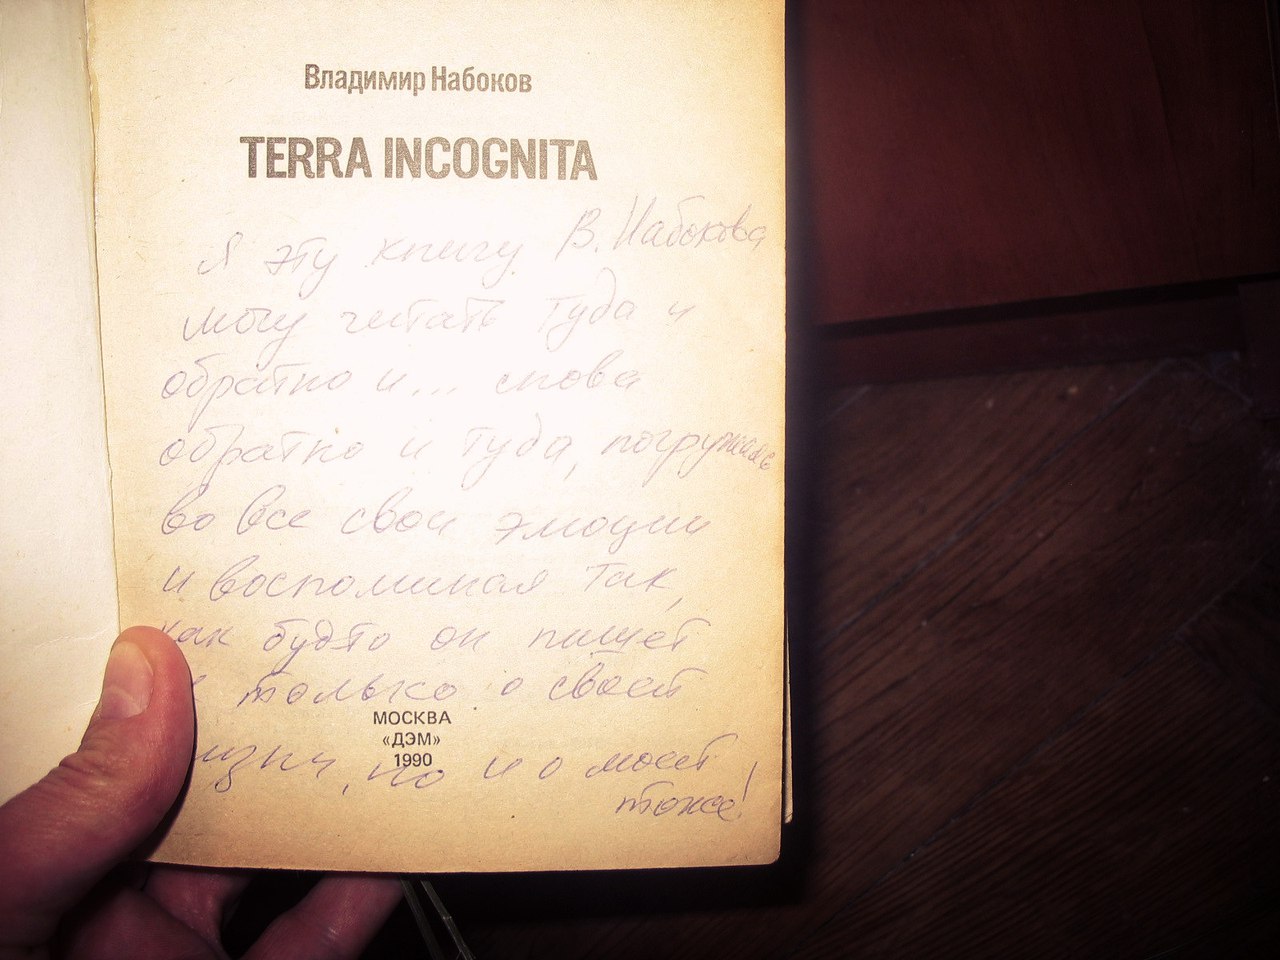 Владимир Набоков
TERRA INCOGNITA
Я эту книгу В. Набокова
могу читать туда и
обратно и... снова
обратно и туда, погружаясь
во все свои эмоции
и воспоминая так,
как будто он пишет
только о своей
но и о моей
тоже!
МОСКВА
«ДЭМ»
1990